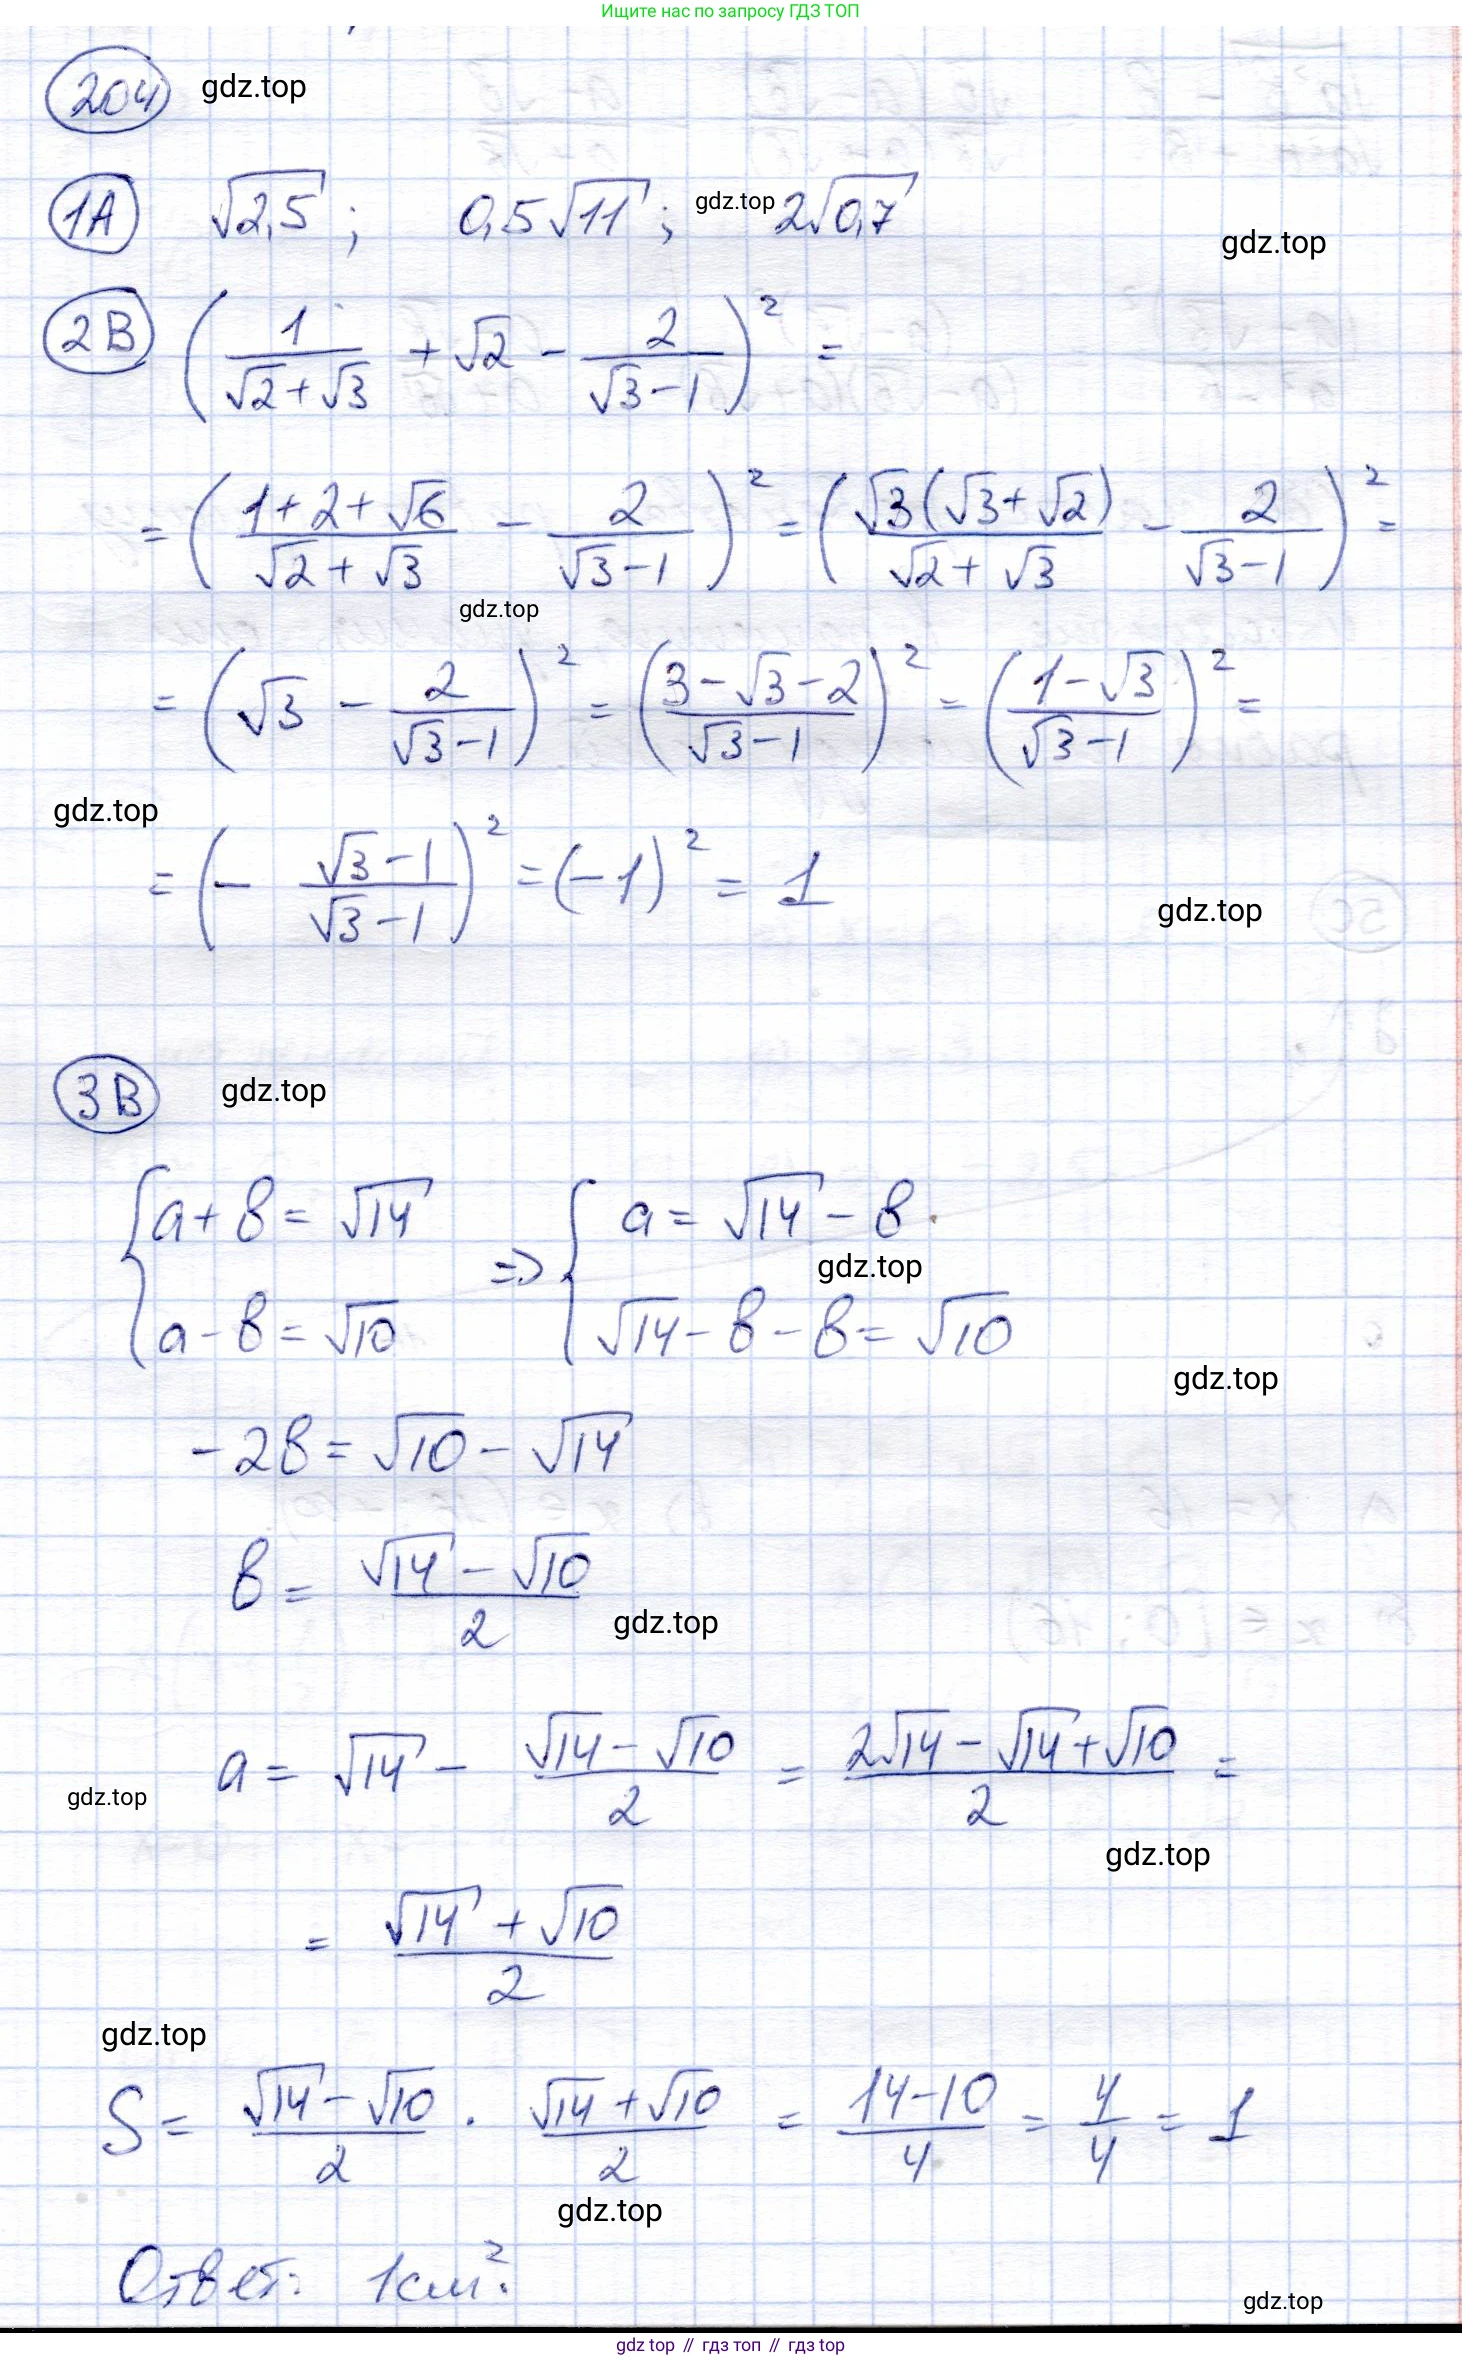 Ищите нас по запросу ГДЗ ТОП
204 gdz.top
1А √2,5 ; 0,5√11 ; gdz.top 2√0,7
gdz.top
2В (1/(√2+√3) + √2 - 2/(√3-1))² =
= ((1+2+√6)/(√2+√3) - 2/(√3-1))² = (√3(√3+√2)/(√2+√3) - 2/(√3-1))² =
gdz.top
= (√3 - 2/(√3-1))² = ((3-√3-2)/(√3-1))² = ((1-√3)/(√3-1))² =
gdz.top
= (- (√3-1)/(√3-1))² = (-1)² = 1
gdz.top
3В gdz.top
{ a+в = √14 => { a = √14 - в
gdz.top
{ a-в = √10 { √14 - в - в = √10
gdz.top
-2в = √10 - √14
в = (√14 - √10)/2
gdz.top
a = √14 - (√14 - √10)/2 = (2√14 - √14 + √10)/2 =
gdz.top
gdz.top
= (√14 + √10)/2
gdz.top
S = (√14 - √10)/2 · (√14 + √10)/2 = (14-10)/4 = 4/4 = 1
gdz.top
Ответ: 1см².
gdz.top
gdz top // гдз топ // гдз top